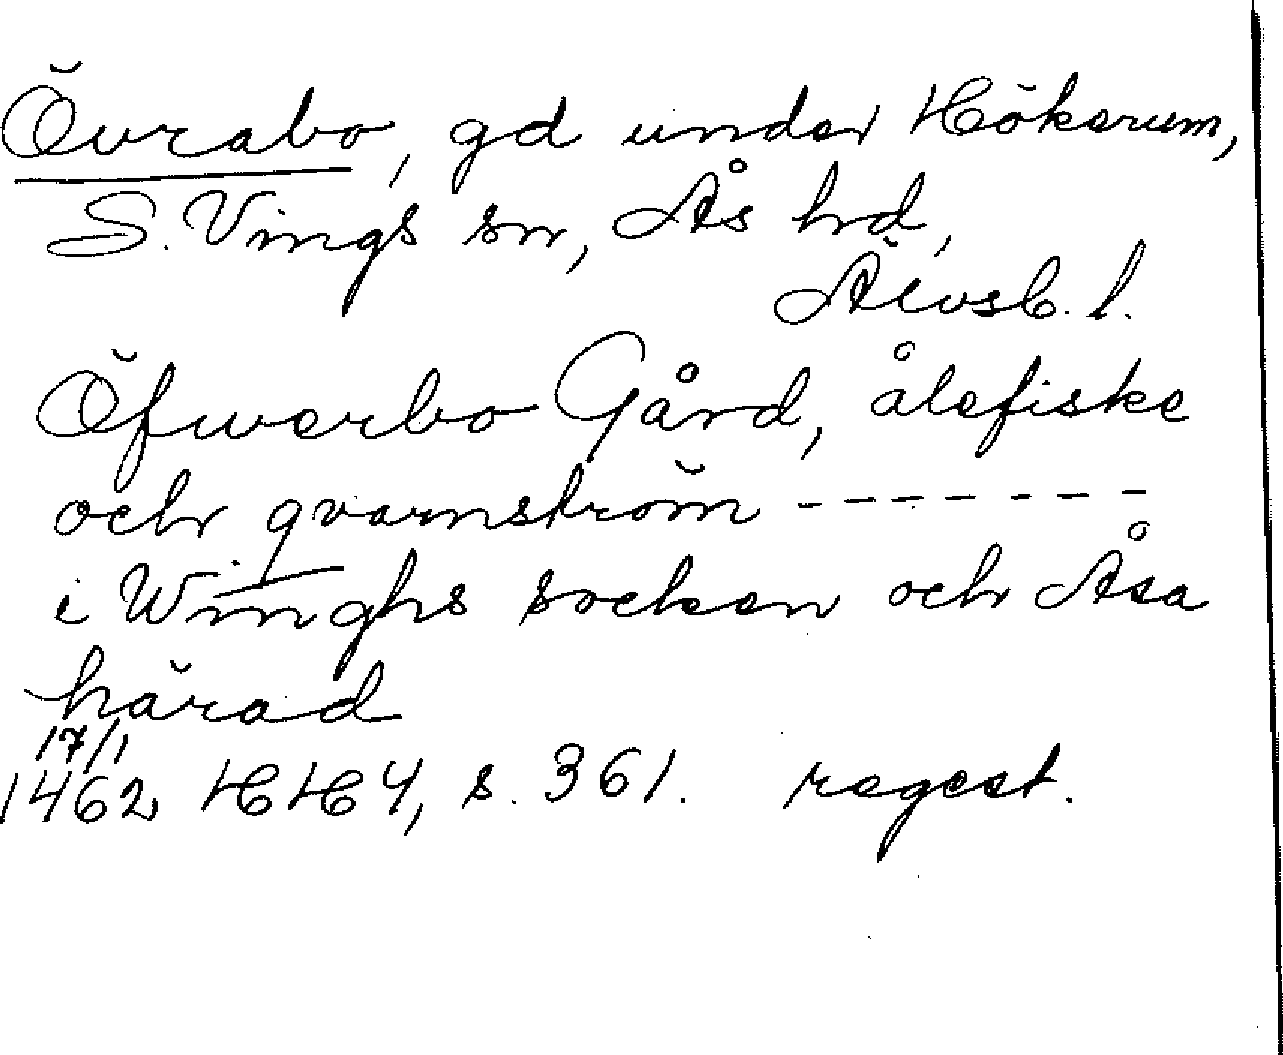 Övrabo, gd under Hökerum,
S. Vings sn, Ås hd,
Älvsb. l.
Öfwerbo Gård, ålefiske
och qvarnström - - - - - - - -
i Winghs socken och Åsa
härad
17/1
1462 HH 4, s. 361. regest.